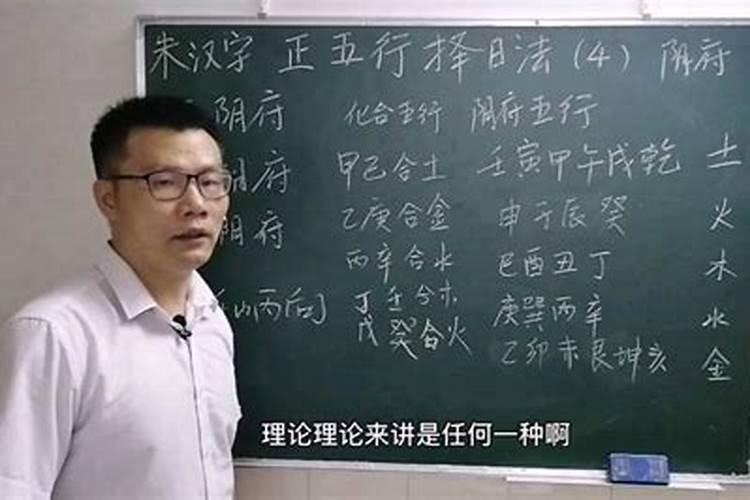 朱汉字 正五行择日法（4） 阴府
阴府 化合五行 阴府五行
阴府 甲己合土 壬寅甲午戌乾 土
阴府 乙庚合金 申子辰癸 火
丙辛合水 巳酉丑丁 木
山两向 丁壬合木 庚巽丙辛 水
戊癸合火 乙卯未艮坤亥 金
理论理论来讲是任何一种啊